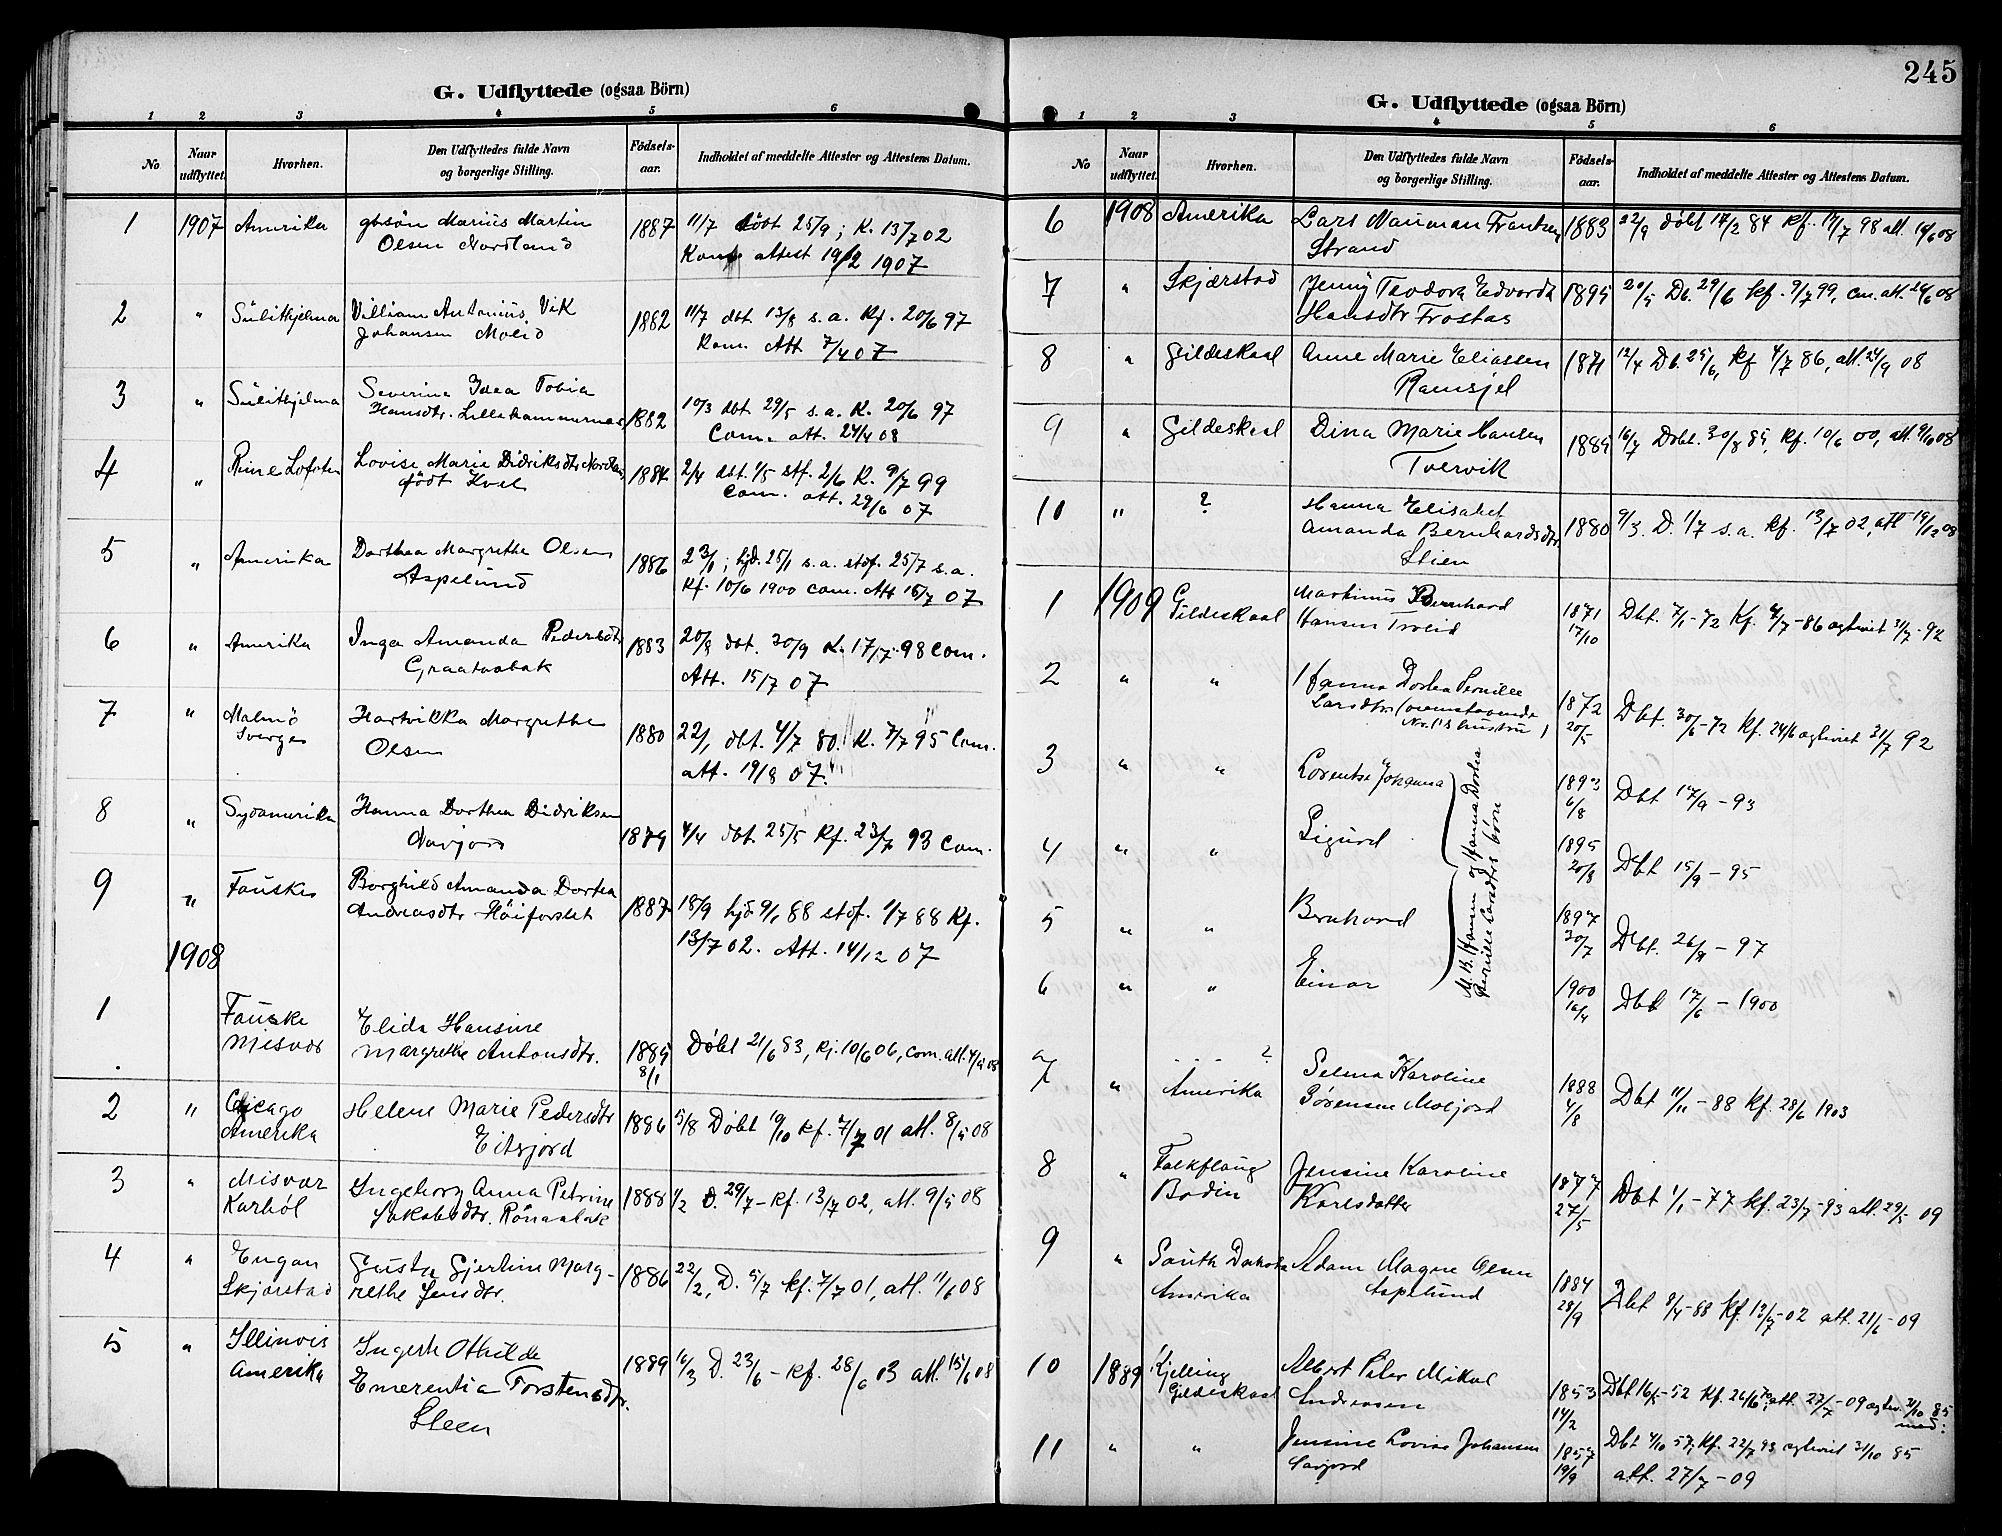 G. Udflyttede (ogsaa Börn)
1 2 3 4 5 6
No
Naar udflyttet.
Hvorhen.
Den Udflyttedes fulde Navn
og borgerlige Stilling.
Födsels-
aar.
Indholdet af meddelte Attester og Attestens Datum.
1 1907 Amerika gbsön Marius Martin 1887 11/7 döbt 25/9; K. 13/7 02
Olsen Nordland attest 1907
2 " Sülithjelma Villiam Antonius Vik 1882 11/7 dbt 13/8 s.a. Kf. 20/6 97
Johansen Kom. Att 7/4 07
3 " Sülithjelma Severine Idea Tobia 1882 10/3 dbt 29/5 s.a. K. 20/6 97
Hansdtr. Lillehammernæs Com. att. 24/4 08
4 " Reine Lofoten Lovise Marie Didriksdtr 1884 2/4 dbt. 1/5 stf. 2/6 K. 9/7 99
födt Com. att. 29/6 07
5 " Amerika Dorthea Margrethe Olsen 1886 23/1; hjd. 25/1 s.a. stdf. 25/7 s.a.
Aspelund Kf. 10/6 1900 com. Att 15/7 07
6 " Amerika Inga Amanda Pedersdtr 1883 20/8 dbt. 30/9 K. 17/7-98 Com.
Graatvabak Att. 15/7 07
7 " Malmö Hartvikka Margrethe 1880 22/1 dbt. 4/7 80. K. 7/7 95 Com.
Sverge Olsen att. 19/8 07.
8 " Sydamerika Hanna Dorthea Didriksen 1879 4/4 dbt. 25/5 Kf. 23/7 93 Com.
9 " Fauske Borghild Amanda Dortea 1887 18/9 hjd 9/1 88 stdf. 1/7 88 Kf.
Andreasdtr Höiforslet 13/7 02. Att. 14/12 07
1908
1 Fauske Elida Hansine
Misvær Margrethe Antonsdtr. 1885 Döbt 21/6 83, kf. 10/6 06, com. att. 08
8/1
2 " Chicago Helene Marie Pedersdtr 1886 5/8 Döbt 19/10 kf. 7/7 01 att. 8/5 08
Amerika Eitsjord
3 " Misvær Ingeborg Anna Petrine 1888 1/2 D. 29/7 - kf. 13/7 02, att. 9/5 08
Karböl Jakobsdtr.
4 " Engan Gusta Gjertine Marg- 1886 22/2, D. 5/7 kf. 7/7 01, att. 11/6 08
Skjærstad rethe Jensdtr.
5 " Illinois Othilde 1889 16/3 D. 23/6 - kf. 28/6 03 att. 15/6 08
Amerika Emerentia Torstensdtr.
Steen
245
G. Udflyttede (ogsaa Börn)
1 2 3 4 5 6
No
Naar udflyttet.
Hvorhen.
Den Udflyttedes fulde Navn
og borgerlige Stilling.
Födsels-
aar.
Indholdet af meddelte Attester og Attestens Datum.
6 1908 Amerika Lars Nauman Frantzen 1883 22/9 döbt 17/2 84 kf. 17/7 98 att. 19/6 08
Strand
7 " Skjærstad Jenny Teodora Edvarda 1895 20/5 Db. 29/6 kf. 9/7 99, cm. att. 26/6 08
Hansdtr Frostas
8 " Gildeskaal Anne Marie Eliassen 1871 12/4 Db. 25/6, kf 4/7 86, att. 24/9 08
Ramsjel
9 " Gildeskaal Dina Marie Hansen 1885 16/7 Döbt. 30/8 85, kf. 10/6 00, att. 08
Tvervik
10 " ? Hanna Elisabet
Amanda Bernhardsdtr 1880 9/3. D. 1/7 s.a. kf. 13/7 02, att 19/12 08
Stien
1 1909 Gildeskaal Martinus Bernhard 1871 Dbt. 7/1-72 Kf. 4/7-86 og 31/7-92
Hansen Troeid 17/10
2 " " Hanna Dortea Pernille 1872 Dbt. 30/6-72 Kf. 24/6 og 31/7 92
Larsdtr (ovenstaaende 20/5
No. 1's hustru)
3 " " Lorentse Johanna 1893 Dbt 17/9-93
6/8
4 " " Sigurd 1895 Dbt 15/9-95
20/8
M. B. Hansen og Hanna Dortea
Pernille Larsdtrs börn
5 " " Bernhard 1897 Dbt. 26/9-97
30/7
6 " " Einar 1900 Dbt 17/6-1900
16/4
7 " ? Selma Karoline 1888 Dbt 11/11-88 Kf. 28/6 1903
Amerika Sörensen 4/8
8 " Falkflaug Jensine Karoline 1877 Dbt 1/1-77 kf. 23/7-93 att. 29/5 09
Bodin Karlsdatter 27/5
9 " South Dakota Adam Magne Olsen 1884 Dbt 8/4-88 Kf. 13/7-02 att. 21/6-09
Amerika Aspelund 28/9
10 1989 Kjelling Albert Peter Mikal 1853 Dbt 16/5-52 Kf. 26/6 att. 27/7-09 31/10 85
Gildeskaal Andreasen 14/2 med:
11 " " Jensine Lovise Johansen 1857 Dbt 4/10 57, Kf. 22/7 93 og 31/10 85
19/9 att. 27/7-09